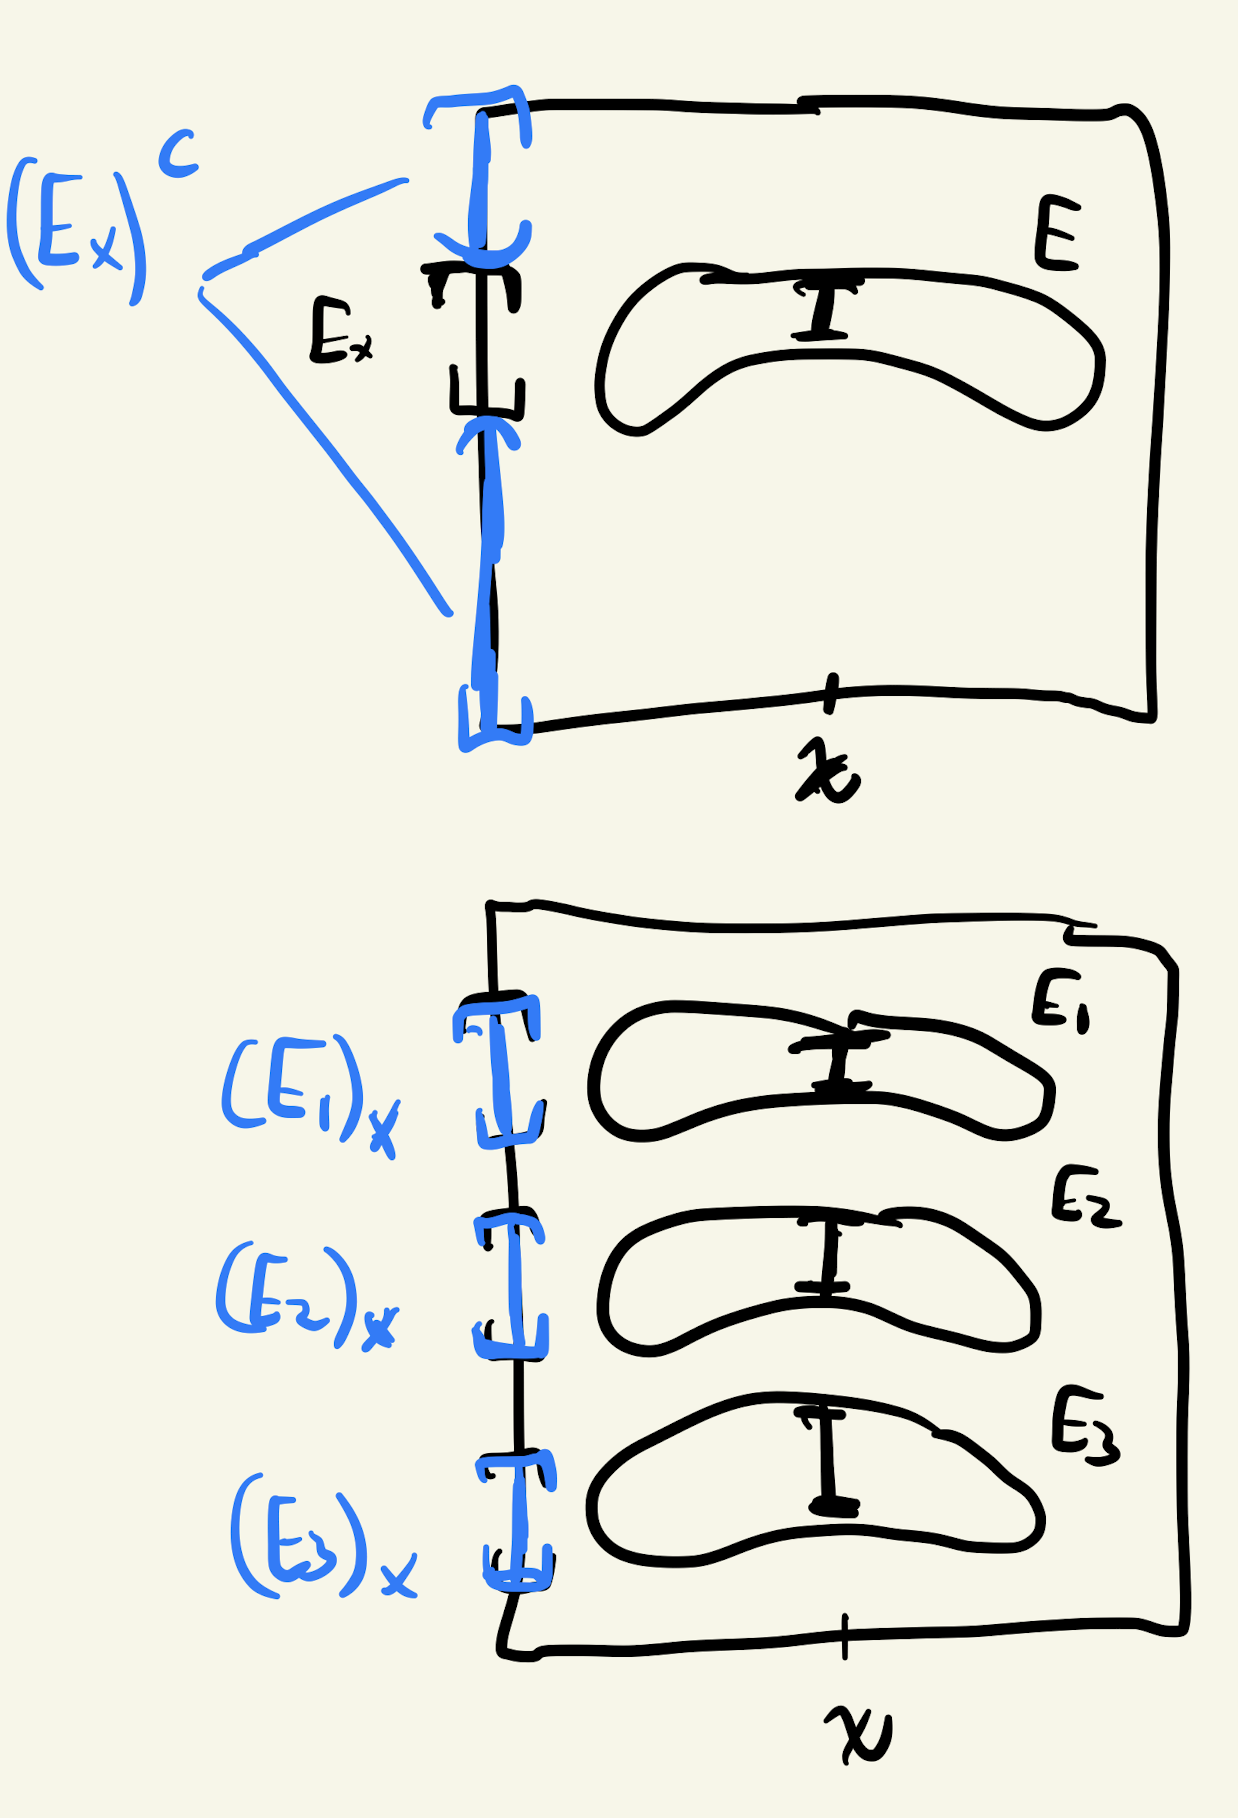 (Eₓ)ᶜ
E
Eₓ
x
E₁
(E₁)ₓ
E₂
(E₂)ₓ
E₃
(E₃)ₓ
x